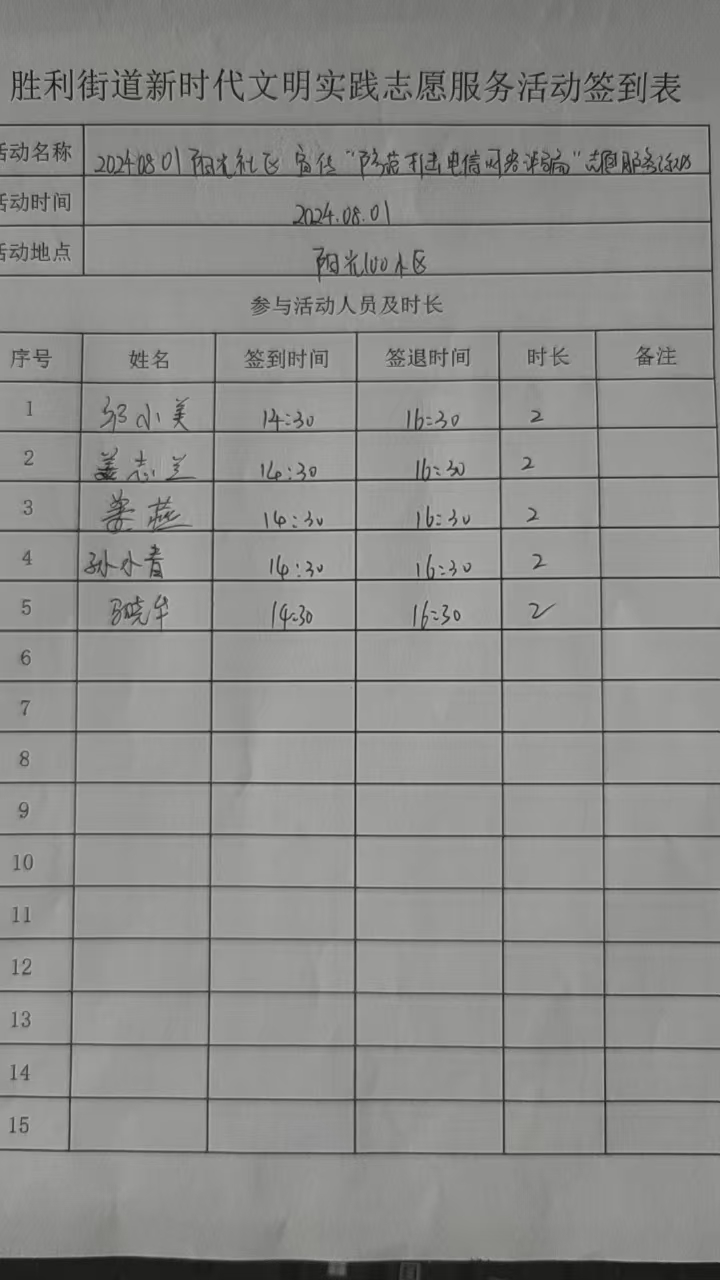 胜利街道新时代文明实践志愿服务活动签到表
活动名称 20240801阳光社区宣传“防范打击电信网络诈骗”志愿服务活动
活动时间 2024.08.01
活动地点 阳光100小区
参与活动人员及时长
序号 姓名 签到时间 签退时间 时长 备注
1 邹小美 14:30 16:30 2
2 姜志兰 14:30 16:30 2
3 娄燕 14:30 16:30 2
4 孙小青 14:30 16:30 2
5 晓华 14:30 16:30 2
6
7
8
9
10
11
12
13
14
15